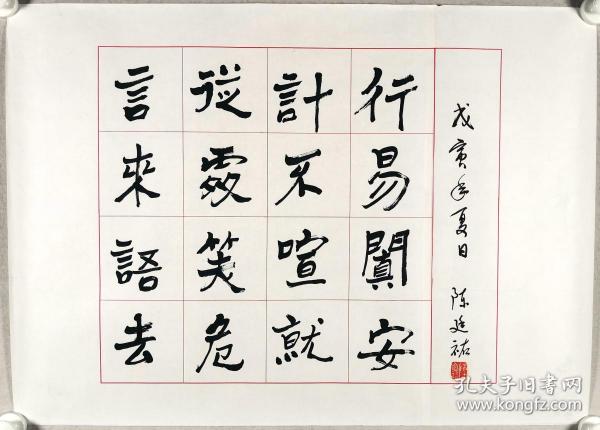 言從計行
來處不易
語笑喧闐
去危就安
戊寅年夏日 陈廷祐
孔夫子旧书网
www.kongfz.com